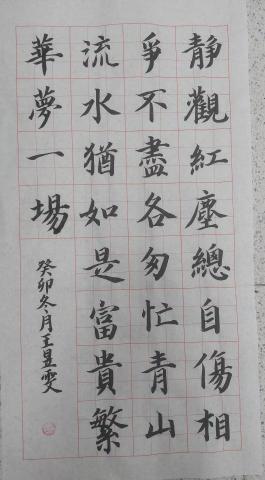 靜觀紅塵總自傷相
爭不盡各匆忙青山
流水猶如是富貴繁
華夢一場
癸卯冬月王昱雯